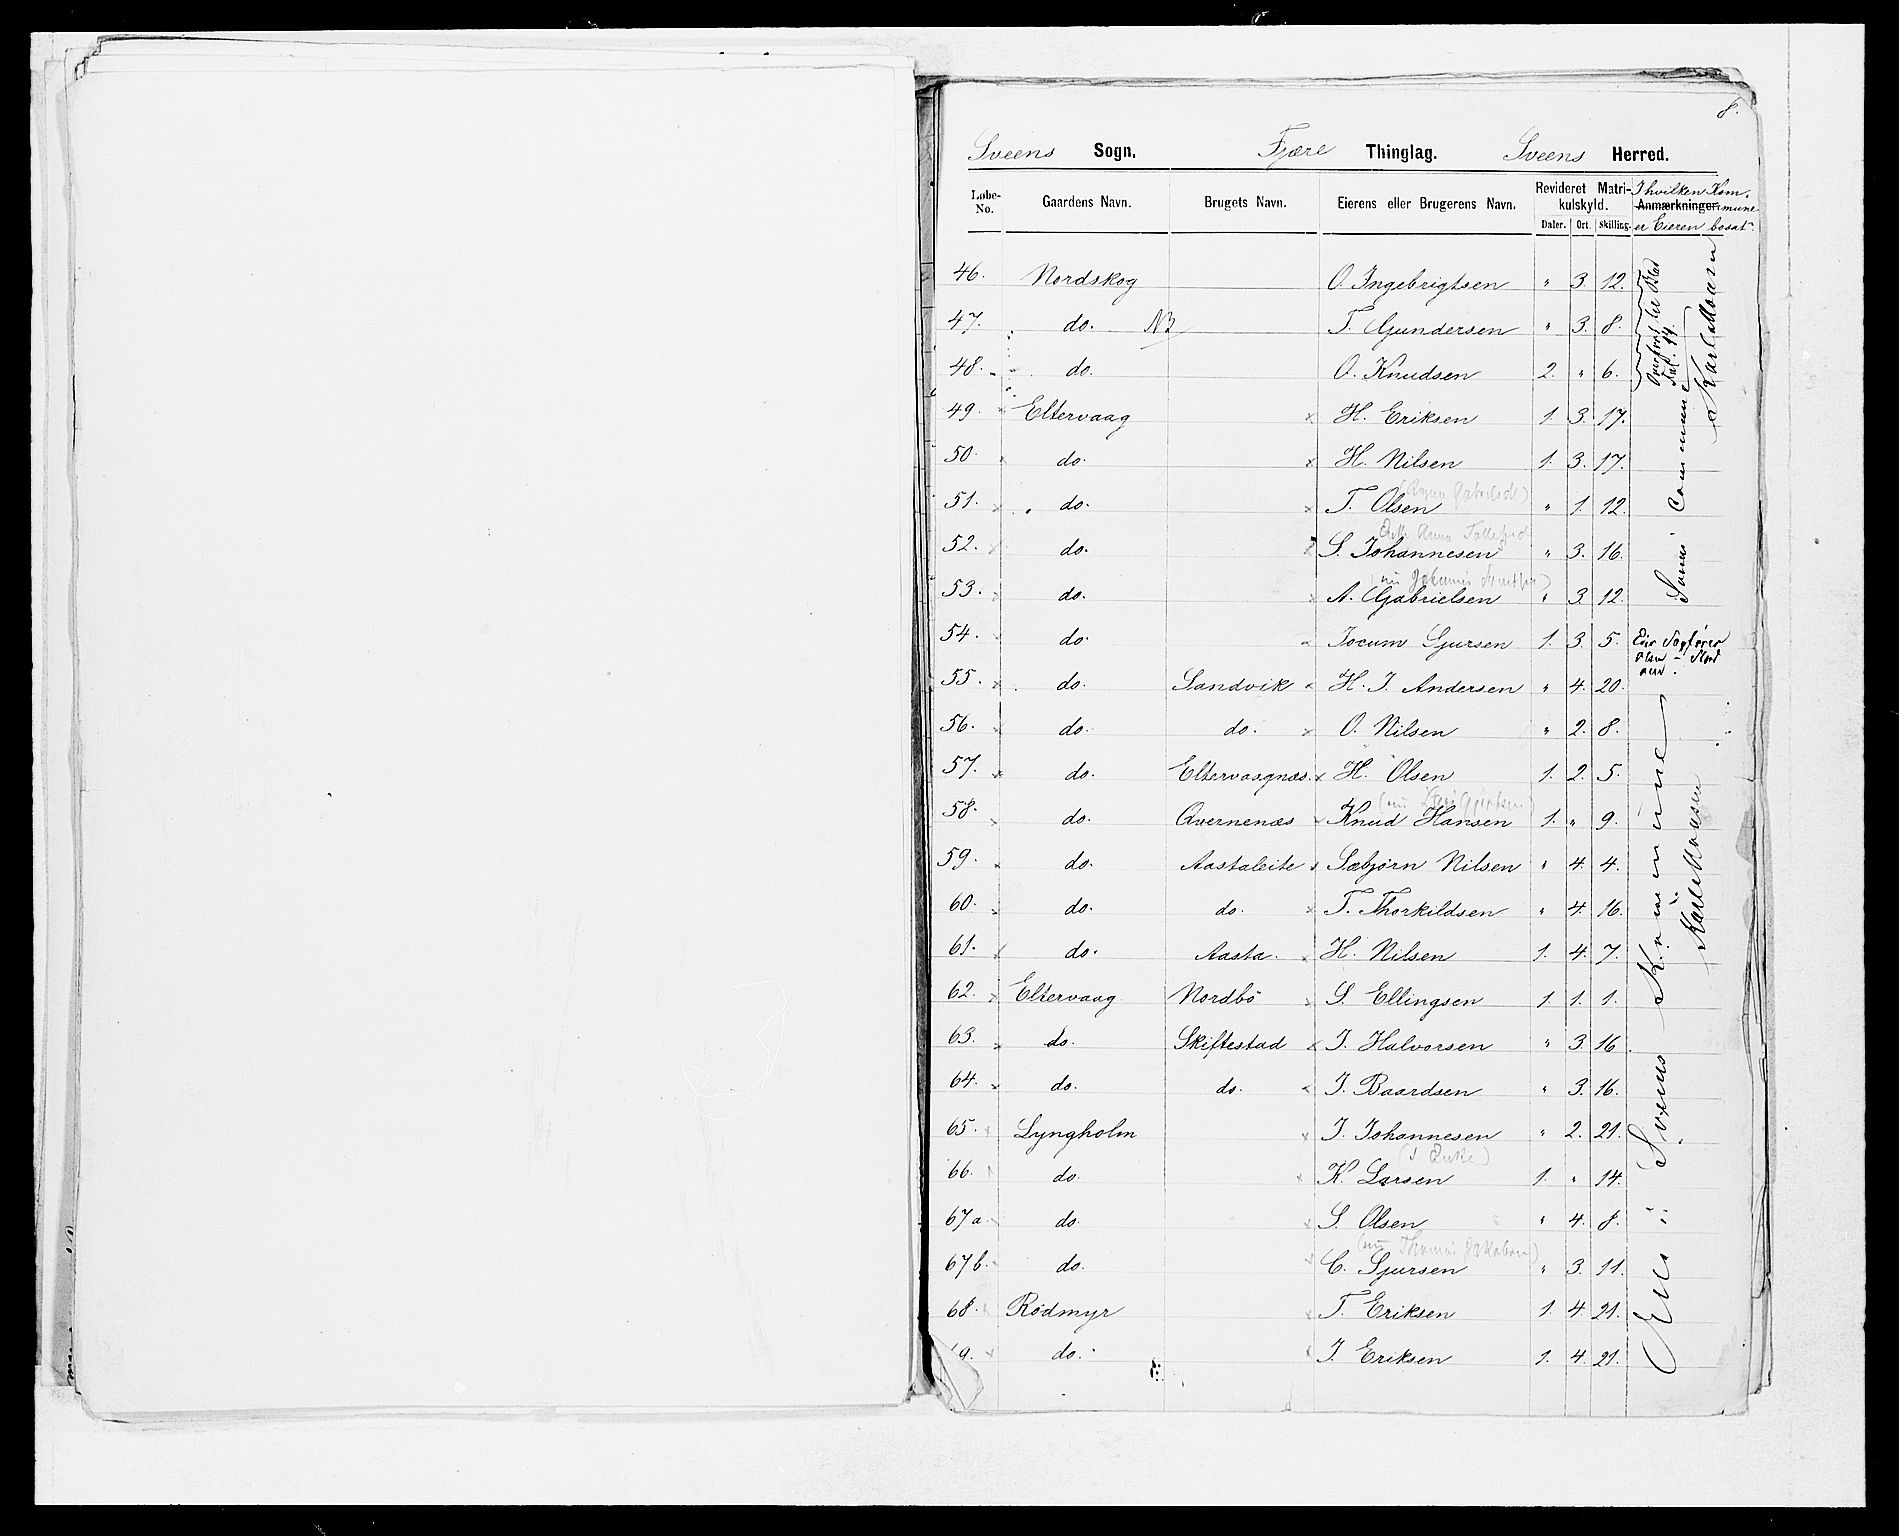 8.
Sveens Sogn. Fjære Thinglag. Sveens Herred.
Løbe-No. Gaardens Navn. Brugets Navn. Eierens eller Brugerens Navn. Revideret Matrikulskyld. Daler. Ort. Skilling. Anmærkninger. I hvilken Kommune er Eieren bosat.
46. Nordskog O. Ingebrigtsen " 3. 12.
47. do. NB T. Gundersen " 3. 8.
48. do. O. Knudsen 2. " 6.
49. Eltervaag x H. Eriksen 1. 3. 17.
50. do. x H. Nilsen 1. 3. 17.
51. do. x T. Olsen " 1. 12.
52. do. x S. Johannesen " 3. 16.
53. do. x A. Gabrielsen " 3. 12.
54. do. Jocum Sjursen 1. 3. 5.
55. do. Sandvik H. J. Andersen " 4. 20.
56. do. do. x O. Nilsen " 2. 8.
57. do. Eltervaagnæs. x H. Olsen 1. 2. 5.
58. do. Qvernenæs Knud Hansen 1. " 9.
59. do. Aastaleite Sæbjørn Nilsen " 4. 4.
60. do. do. x T. Thorkildsen " 4. 16.
61. do. Aasta. H. Nilsen 1. 4. 7.
62. Eltervaag Nordbö S. Ellingsen 1. 1. 1.
63. do. Skiftestad x J. Halvorsen " 3. 16.
64. do. do. J. Baardsen " 3. 16.
65. Lyngholm x J. Johannesen " 2. 21.
(s Enke)
66. do. x K. Larsen 1. " 14.
67a. do. x S. Olsen " 4. 8.
67b. do. C. Sjursen " 3. 11.
68. Rødmyr T. Eriksen 1. 4. 21.
do. J. Eriksen 1. 4. 21.
Sveens Kommune